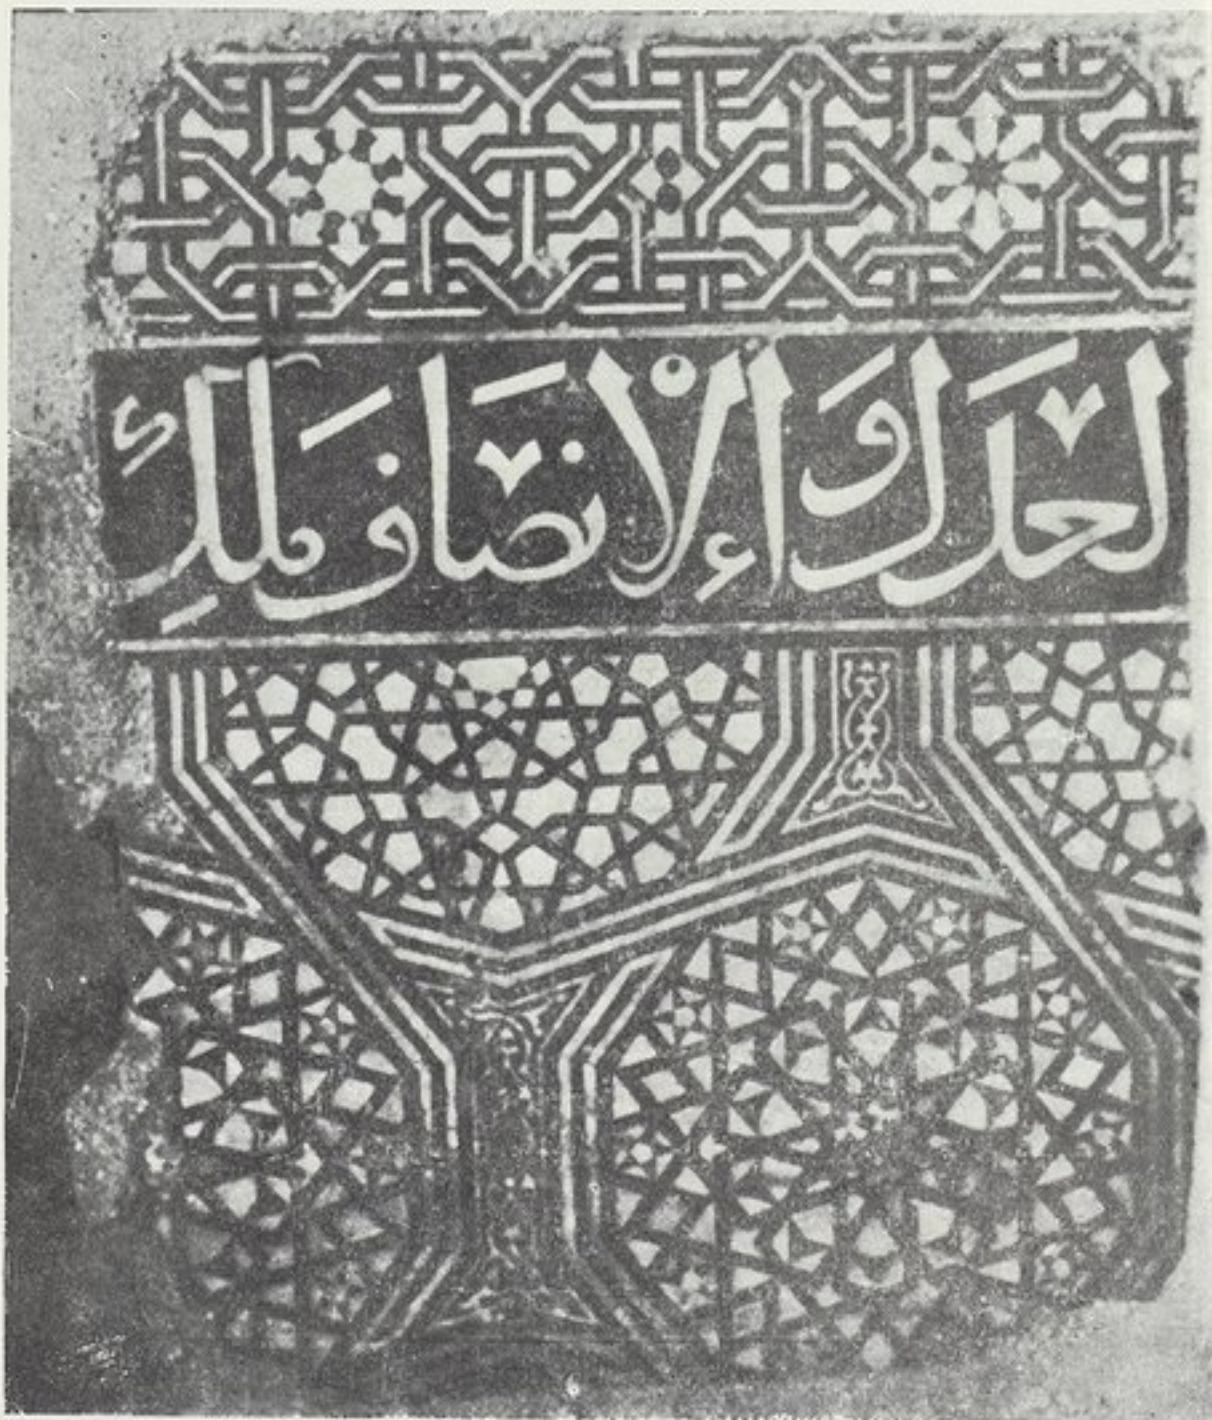 لعدل و الإنصاف ملك
6